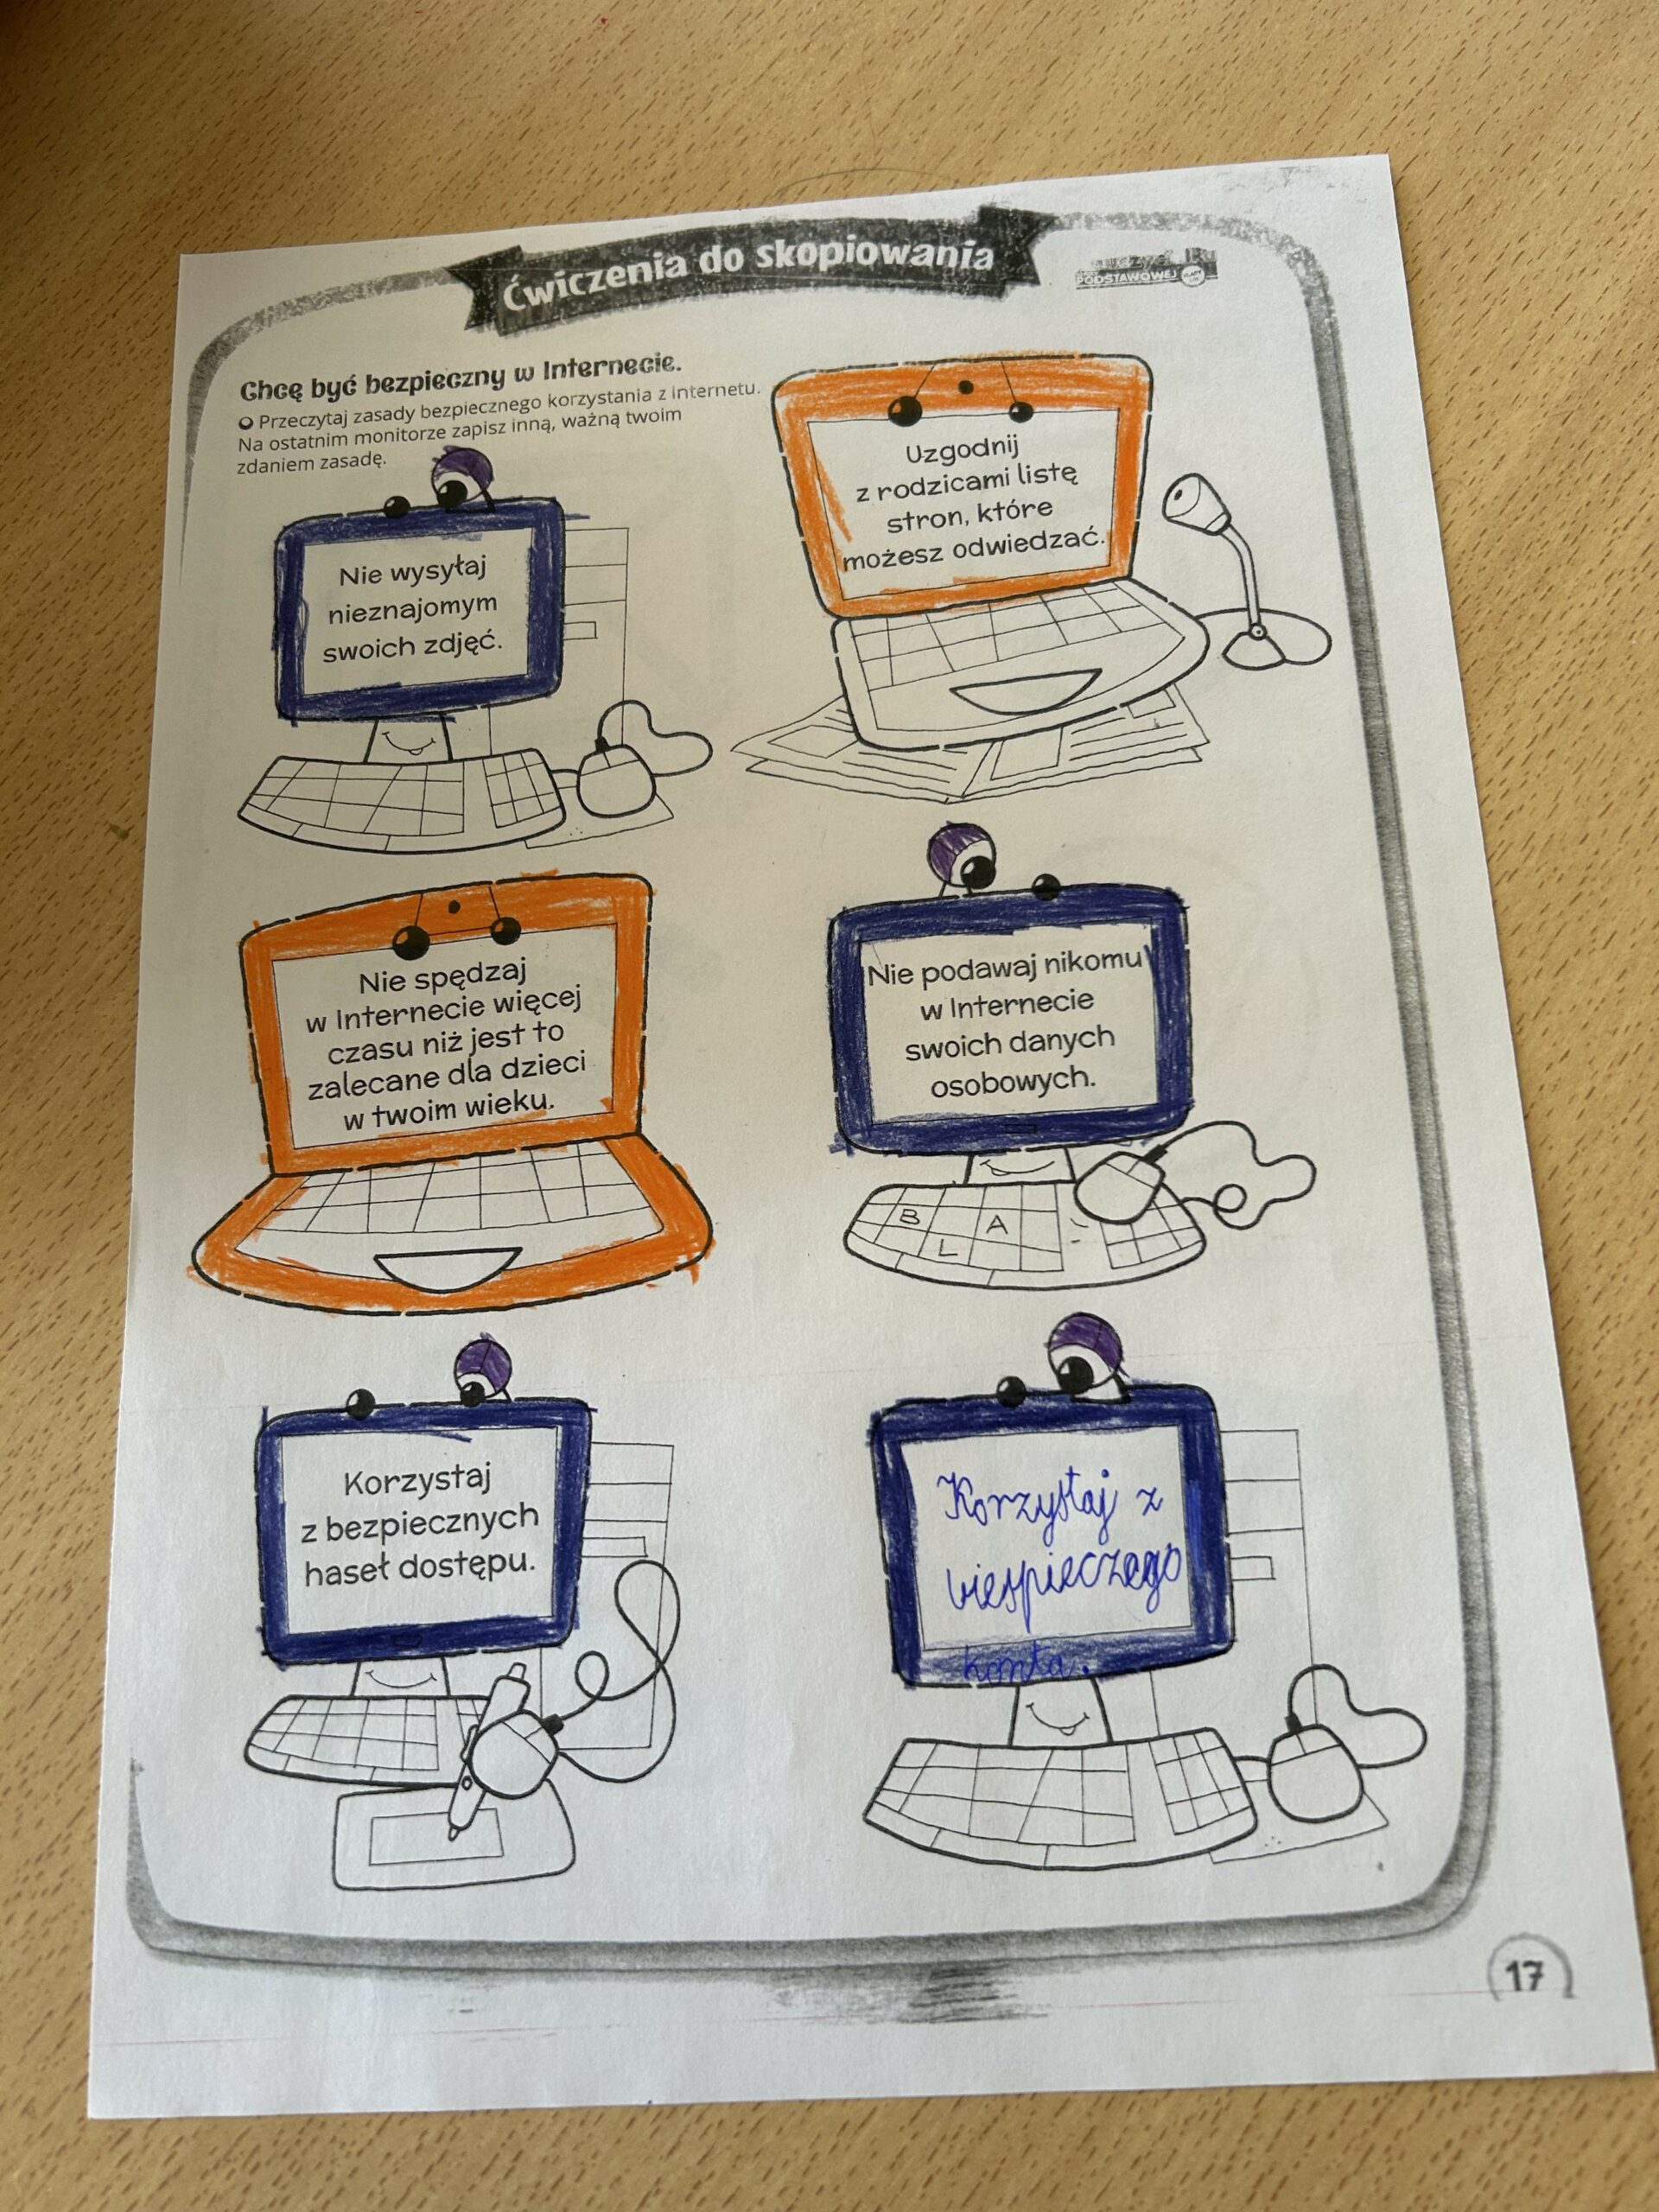 Ćwiczenia do skopiowania
PODSTAWOWEJ
Chcę być bezpieczny w Internecie.
Przeczytaj zasady bezpiecznego korzystania z internetu.
Na ostatnim monitorze zapisz inną, ważną twoim
zdaniem zasadę.
Nie wysyłaj
nieznajomym
swoich zdjęć.
Uzgodnij
z rodzicami listę
stron, które
możesz odwiedzać.
Nie spędzaj
w Internecie więcej
czasu niż jest to
zalecane dla dzieci
w twoim wieku.
Nie podawaj nikomu
w Internecie
swoich danych
osobowych.
B A
L
Korzystaj
z bezpiecznych
haseł dostępu.
Korzystaj z
biespieczego
konta.
17